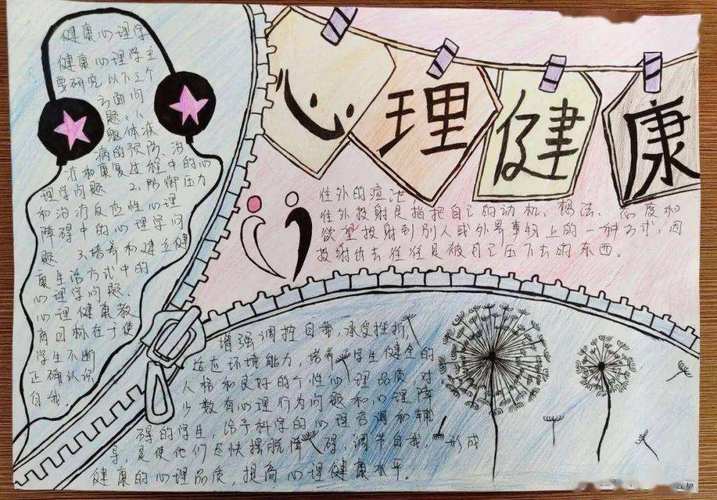 心理健康
健康心理学
健康心理学主
要研究以下三个
方面问
题、1、
躯体疾
病的预防、治
疗和康复过程中的心
理学问题 2、防御压力
和治疗反应性心理
障碍中的心理学问
题 3、培养和建立健
康生活方式中的
心理学问题、
心理健康教
育目标在于使
学生不断
正确认识
自我、
性外的
性外投射是指把自己的动机、想法、态度和
欲望投射到别人或外界事物上的一种方式,因
投射出去往往是被自己压下去的东西。
增强调控自带,承受挫折,
适应环境能力,培养学生健全的
人格和良好的个性心理品质 对
少数有心理行为问题和心理障
碍的学生,给予科学的心理咨询和辅
导,是使他们尽快摆脱障碍,调节自我,形成
健康的心理品质,提高心理健康水平。